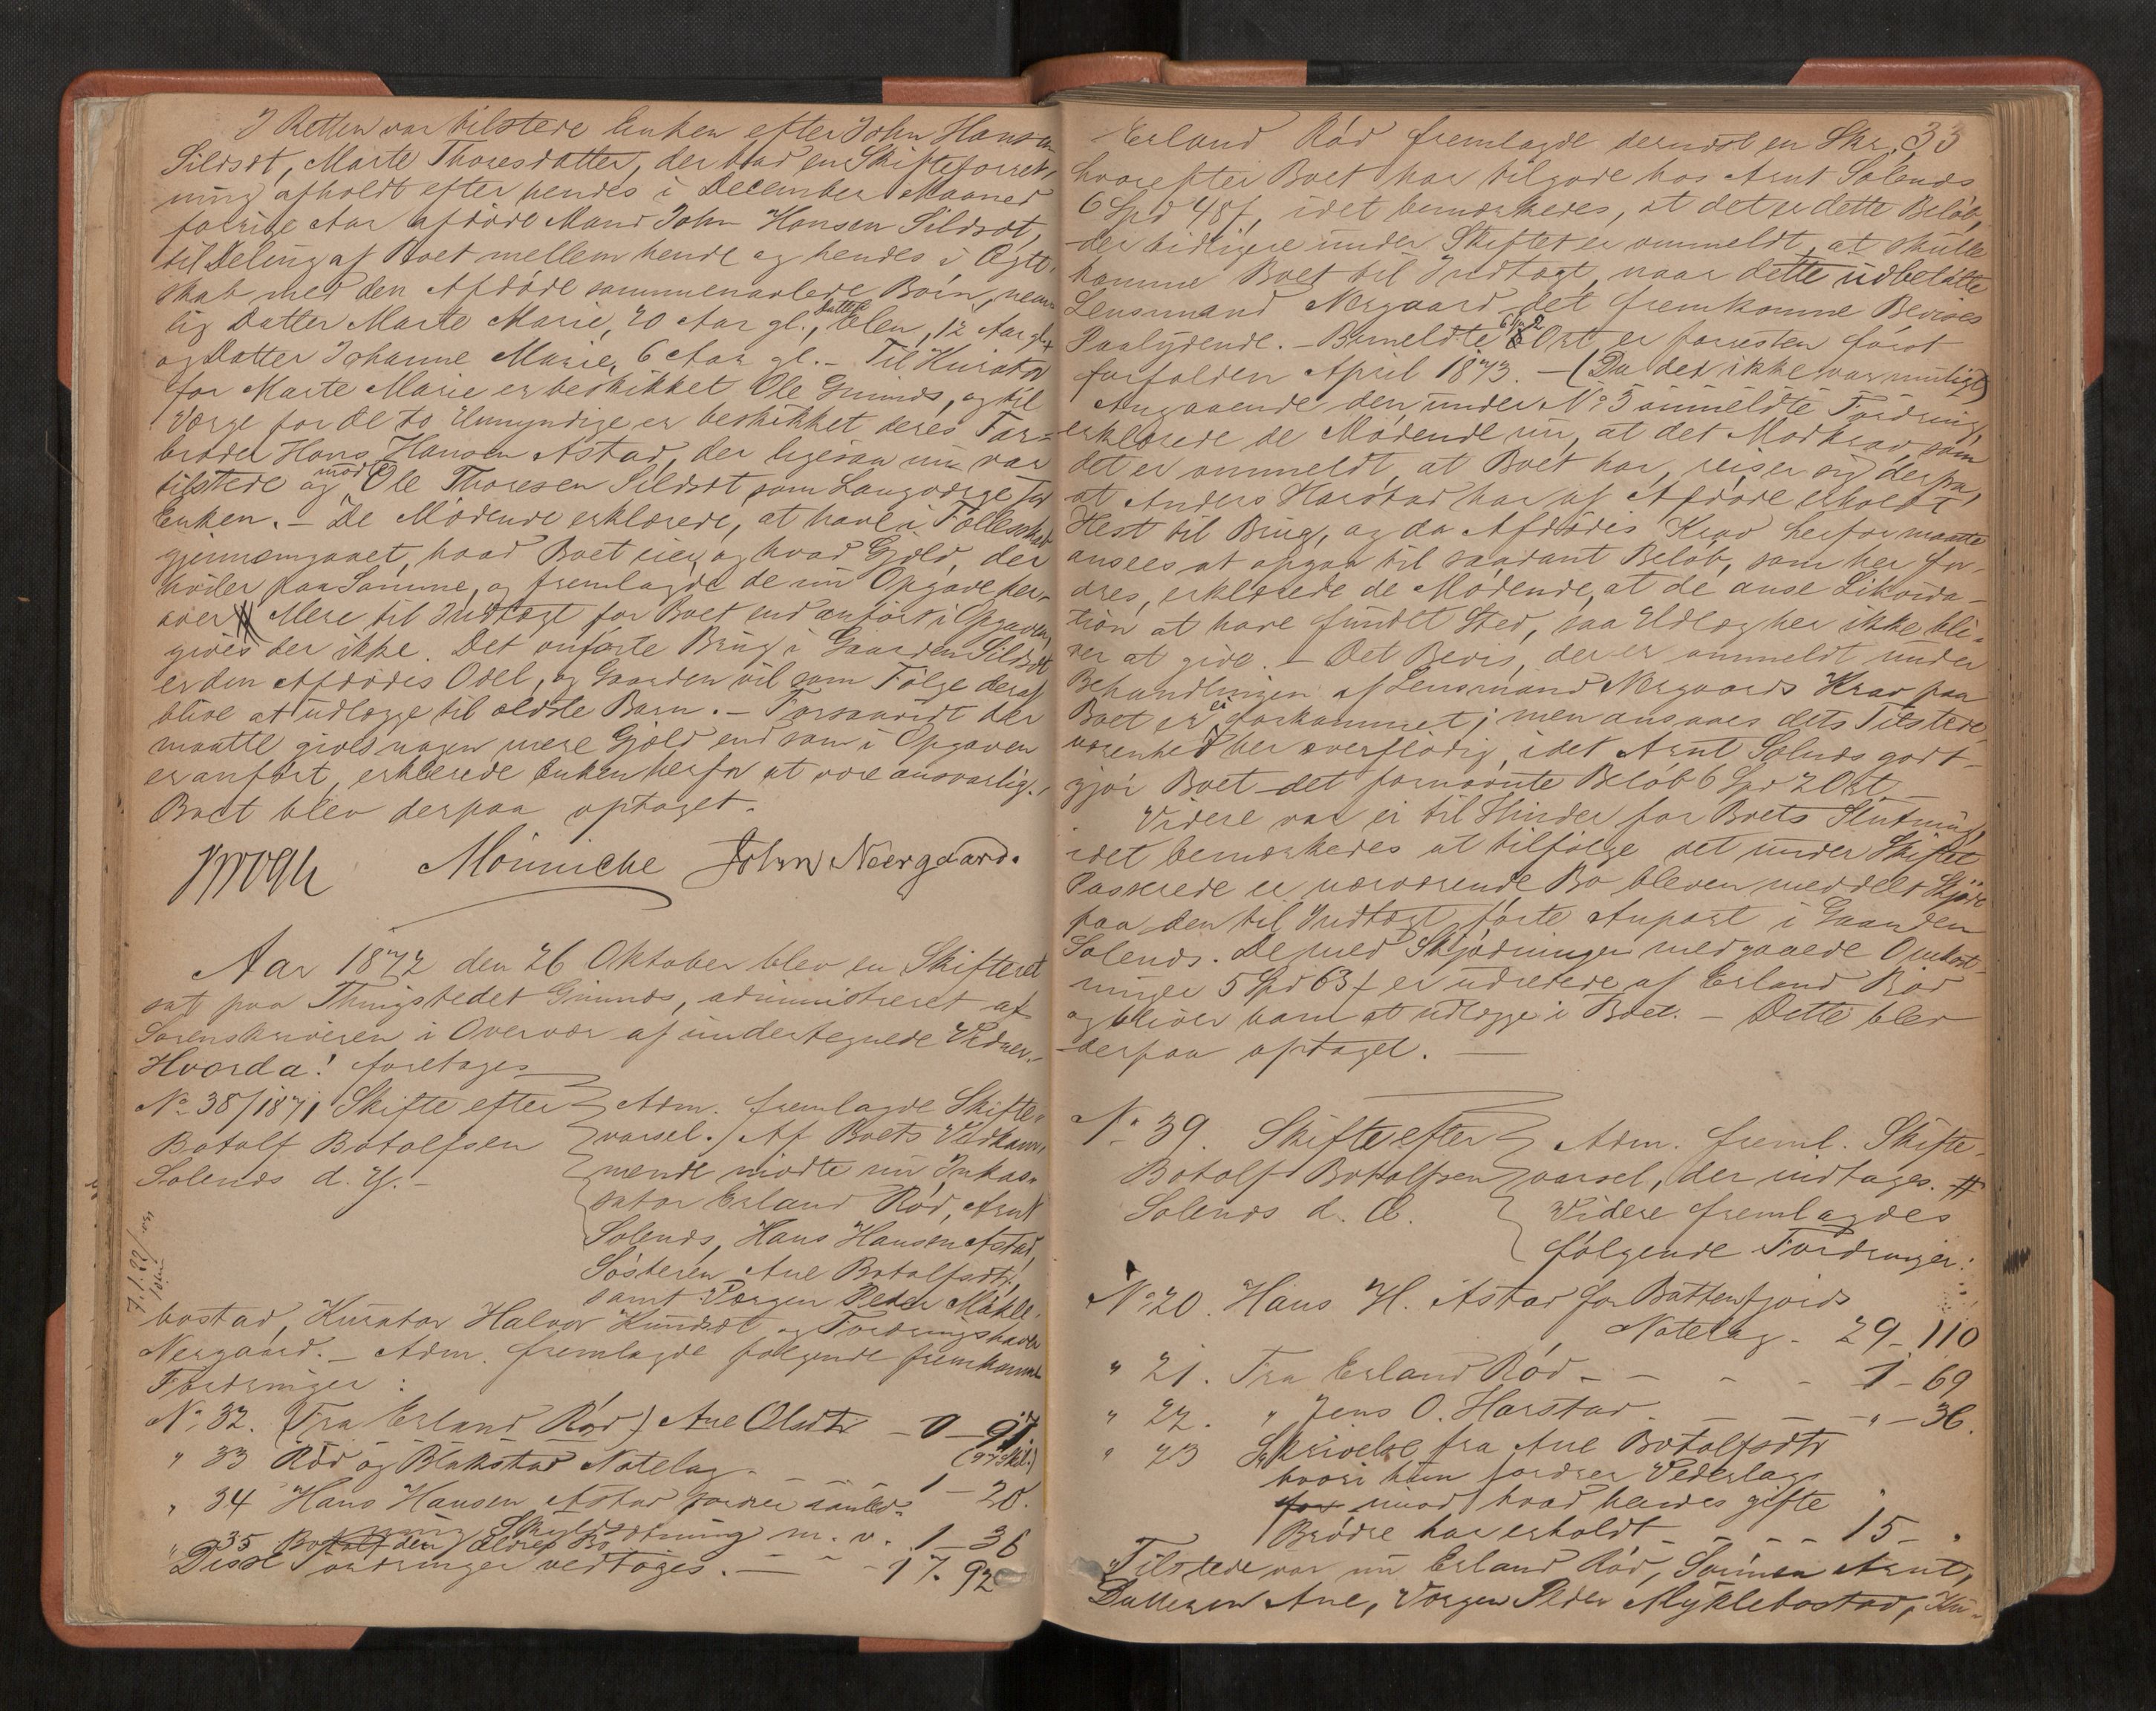 I Retten var tilstede Enken efter John Hansen
Sildset, Marte Thoresdatter, der bad en Skifteforret-
ning afholdt efter hendes i December Maaned
forrige Aar afdøde Mand John Hansen Sildset,
til Deling af Boet mellem hende og hendes i Ægte-
skab med den Afdøde sammenavlede Børn, nem-
lig Datter Marte Marie, 20 Aar gl., Datter Elen, 12 Aar gl.
og Datter Johanne Marie, 6 Aar gl. – Til Kurator
for Marte Marie er beskikket Ole Gimnes, og til
Værge for de to Umyndige er beskikket deres Far-
broder Hans Hansen Astad, der ligesaa nu var
tilstede og mødte Ole Thoresen Sildset som Laugværge for
Enken. – De Mødende erklærede, at have i Fællesskab
gjennemgaaet, hvad Boet eier, og hvad Gjæld, der
hviler paa Samme, og fremlagde de nu Opgave her-
over # Mere til Indtægt for Boet end anført i Opgaven,
gives der ikke. Det anførte Brug i Gaarden Sildset
er den Afdødes Odel, og Gaarden vil som Følge deraf
blive at udlægge til ældste Barn. – Forsaavidt der
maatte gives nogen mere Gjæld end som i Opgaven
er anført, erklærede Enken herfor at være ansvarlig.
Boet blev derpaa optaget.
Krogh Mønniche John Neergaard.
Aar 1872 den 26 Oktober blev en Skifteret
sat paa Thingstedet Gimnes, administreret af
Sorenskriveren i Overvær af undertegnede Vidner. –
Hvorda! foretoges
No 38/1871 Skifte efter
Botolf Botolfsen
Solends d. Y. –
Adm. fremlagde Skifte-
varsel. / Af Boets Vedkom-
mende mødte nu Inkas-
sator Erland Rød, Arnt
Solends, Hans Hansen Astad,
Søsteren Ane Botolfsdtr,
samt Værgen Peder Mükle-
bostad, Kurator Halvor og Fordringshaver
Nergaard. – Adm. fremlagde følgende fremkomne
Fordringer:
No 32. (Fra Erland Rød) Ane Olsdtr – 0 – 97.
(97 Skil.)
" 33 Rød og Blakstad Notelag – 1 – 20.
" 34 Hans Hansen Astad fordrer
Skyldsætning m. v. 1 – 36
" 35 Botolf den Ældres Bo – 17. 92
Disse Fordringer vedtoges. –
33
Erland Rød fremlagde dernæst en Skr.
hvorefter Boet har tilgode hos Arnt Solends
6 Spd 48 ß, idet bemærkedes, at det er dette Beløb,
der tidligere under Skiftet er ommeldt, at skulle
komme Boet til Indtægt, naar dette udbetalte
Lensmand Nergaard det fremkomne Bevises
Paalydende. – Bemeldte 6 Spd 2 Ort er forresten først
forfalden April 1873. – (Da det ikke var muligt)
Angaaende den under No 5 anmeldte Fordring,
erklærede de Mødende nu, at det Modkrav, som
det er ommeldt, at Boet har, reiser sig derpaa,
at Anders Harstad har af Afdøde erholdt
Hest til Brug, og da Afdødes Krav herfor maatte
ansees at opgaa til saadant Beløb, som her for-
dres, erklærede de Mødende, at de anse Likvida-
tion at have fundet Sted, saa Udlæg her ikke bli-
ver at give. – Det Bevis, der er ommeldt under
Behandlingen af Lensmand Nergaards Krav paa
Boet er ei forkommet; men ansaaes dets Tilstede-
værenhed her overflødig, idet Arnt Solends godt-
gjør Boet det fornævnte Beløb 6 Spd 2 Ort –
Videre var ei til Hinder for Boets Slutning,
idet bemærkedes at tilfølge det under Skiftet
Passerede er nærværende Bo bleven meddelt Skjøde
paa den til Indtægt førte Anpart i Gaarden
Solends. De med Skjødningen medgaaede Omkost-
ninger 5 Spd 63 ß er udredede af Erland Rød
og bliver ham at udlægge i Boet. – Dette blev
derpaa optaget. –
No 39. Skifte efter
Botolf Botolfsen
Solends d. Æ.
Adm. freml. Skifte-
varsel, der indtages. #
Videre fremlagdes
følgende Fordringer:
No 20. Hans H. Astad for Battenfjords
Notelag – 29 – 110
" 21. Fra Erland Rød – – – – 1 – 69
" 22. " Jens O. Harstad – – – " – 36.
" 23 Skrivelse fra Ane Botolfsdtr
hvori hun fordrer Vederlag
for imod hvad hendes gifte
Brødre har erholdt – – – – 15 – "
Tilstede var nu Erland Rød, Sønnen Arnt,
Datteren Ane, Værgen Peder Myklebostad, Ku-